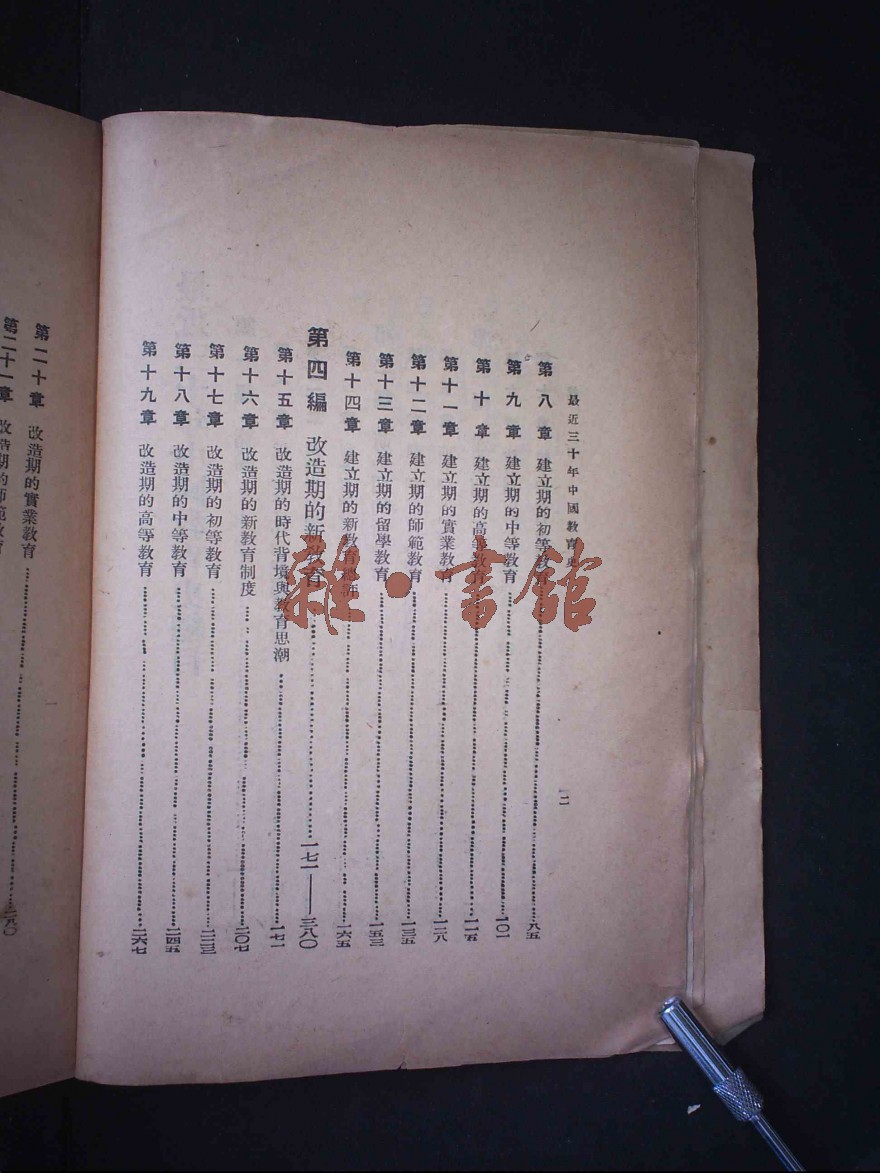 最近三十年中國教育史
二
第八章 建立期的初等教育 八五
第九章 建立期的中等教育 一〇一
第十章 建立期的高等教育 一一五
第十一章 建立期的實業教育 一二八
第十二章 建立期的師範教育 一三五
第十三章 建立期的留學教育 一五三
第十四章 建立期的新教育 一六五
第四編 改造期的新教育 一七一——三八〇
第十五章 改造期的時代背境與教育思潮 一七一
第十六章 改造期的新教育制度 二〇七
第十七章 改造期的初等教育 二二三
第十八章 改造期的中等教育 二四五
第十九章 改造期的高等教育 二六七
第二十章 改造期的實業教育 二八〇
第二十一章 改造期的師範教育
雜·書館